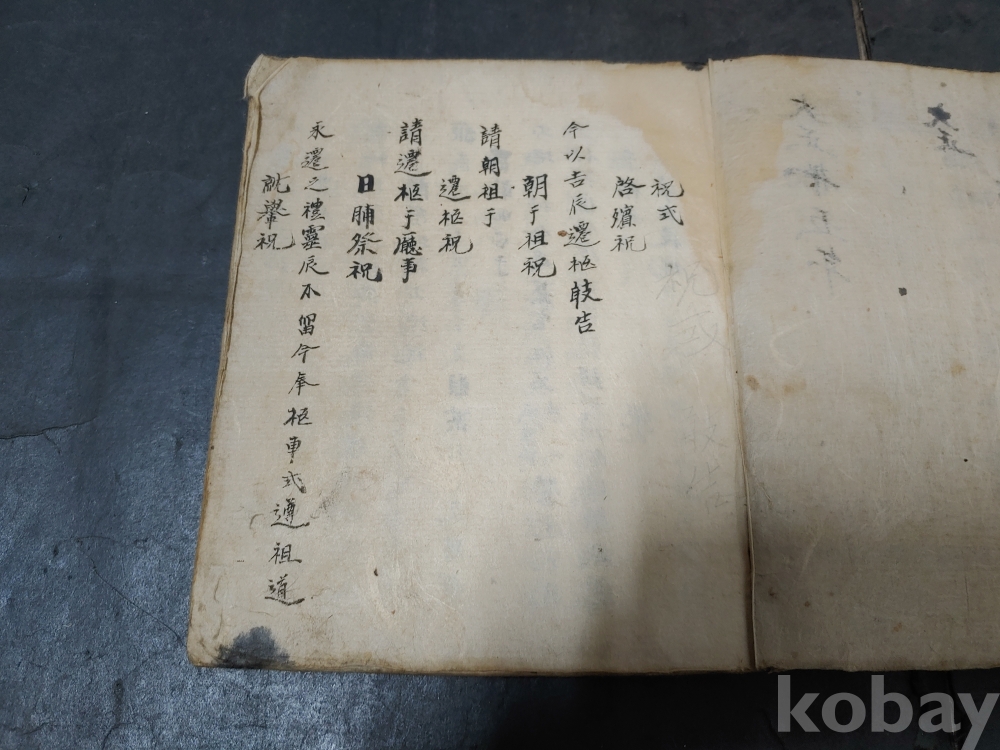 大正
大正 年
祝式
啓殯祝
今以吉辰遷柩敢告
朝于祖祝
請朝祖于
遷柩祝
請遷柩于廳事
日晡祭祝
永遷之禮靈辰不留今奉柩車式遵祖道
就轝祝
kobay